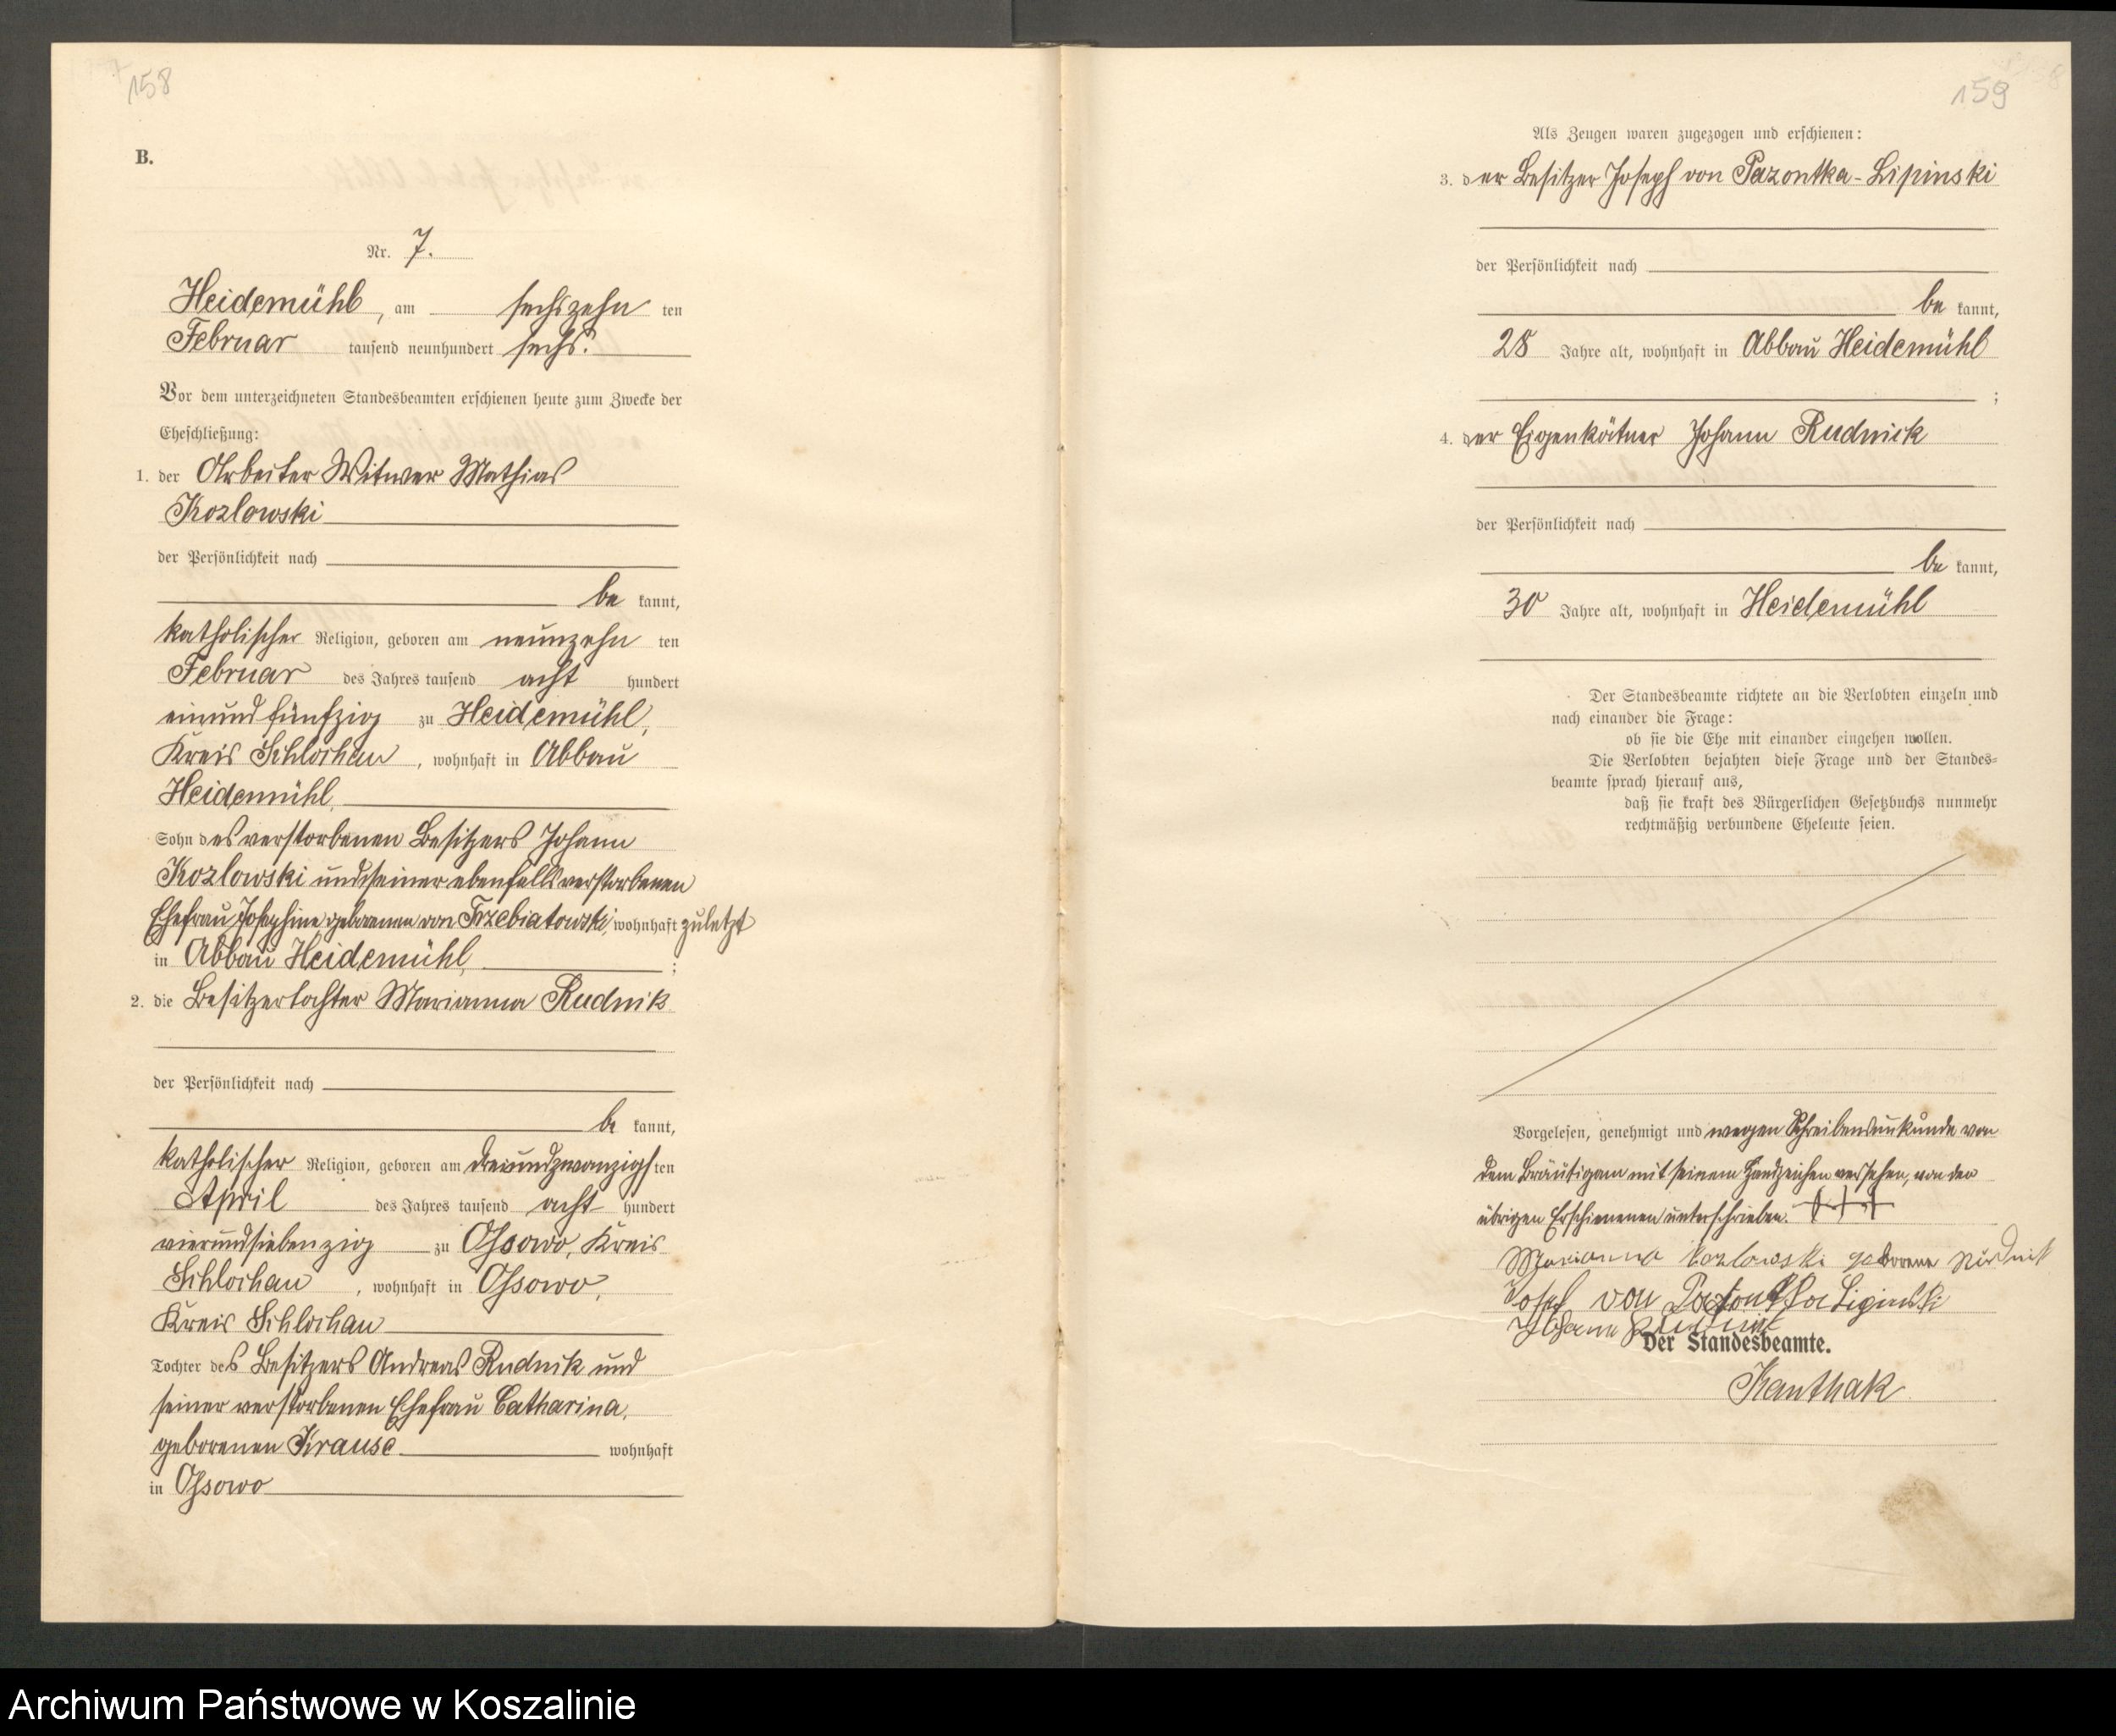 158
B.
Nr. 7.
Heidemühl, am sechszehn ten
Februar tausend neunhundert sechs.
Vor dem unterzeichneten Standesbeamten erschienen heute zum Zwecke der
Eheschließung:
1. der Arbeiter Witwer Mathias
Kozlowski
der Persönlichkeit nach
be kannt,
katholischer Religion, geboren am neunzehn ten
Februar des Jahres tausend acht hundert
einundfünfzig zu Heidemühl,
Kreis Schlochau, wohnhaft in Abbau
Heidemühl,
Sohn des verstorbenen Besitzers Johann
Kozlowski und seiner ebenfalls verstorbenen
Ehefrau Josephine geborenen von Trzebiatowski, wohnhaft zuletzt
in Abbau Heidemühl, ;
2. die Besitzertochter Marianna Rudnik
der Persönlichkeit nach
be kannt,
katholischer Religion, geboren am dreiundzwanzigsten
April des Jahres tausend acht hundert
vierundsiebenzig zu Ossowo, Kreis
Schlochau, wohnhaft in Ossowo,
Kreis Schlochau
Tochter des Besitzers Andreas Rudnik und
seiner verstorbenen Ehefrau Catharina,
geborenen Krause wohnhaft
in Ossowo
159
Als Zeugen waren zugezogen und erschienen:
3. der Besitzer Joseph von Pazontka-Lipinski
der Persönlichkeit nach
be kannt,
28 Jahre alt, wohnhaft in Abbau Heidemühl
;
4. der Eigenkätner Johann Rudnick
der Persönlichkeit nach
be kannt,
30 Jahre alt, wohnhaft in Heidemühl
Der Standesbeamte richtete an die Verlobten einzeln und
nach einander die Frage:
ob sie die Ehe mit einander eingehen wollen.
Die Verlobten bejahten diese Frage und der Standes-
beamte sprach hierauf aus,
daß sie kraft des Bürgerlichen Gesetzbuchs nunmehr
rechtmäßig verbundene Eheleute seien.
Vorgelesen, genehmigt und wegen Schreibensunkunde von
dem Bräutigam mit seinem Handzeichen versehen, von den
übrigen Erschienenen unterschrieben. +++
Marianna Kozlowski geborene Rudnik
Josef von Pazontka Lipinski
Johann Rudnik
Der Standesbeamte.
Kanthak
Archiwum Państwowe w Koszalinie